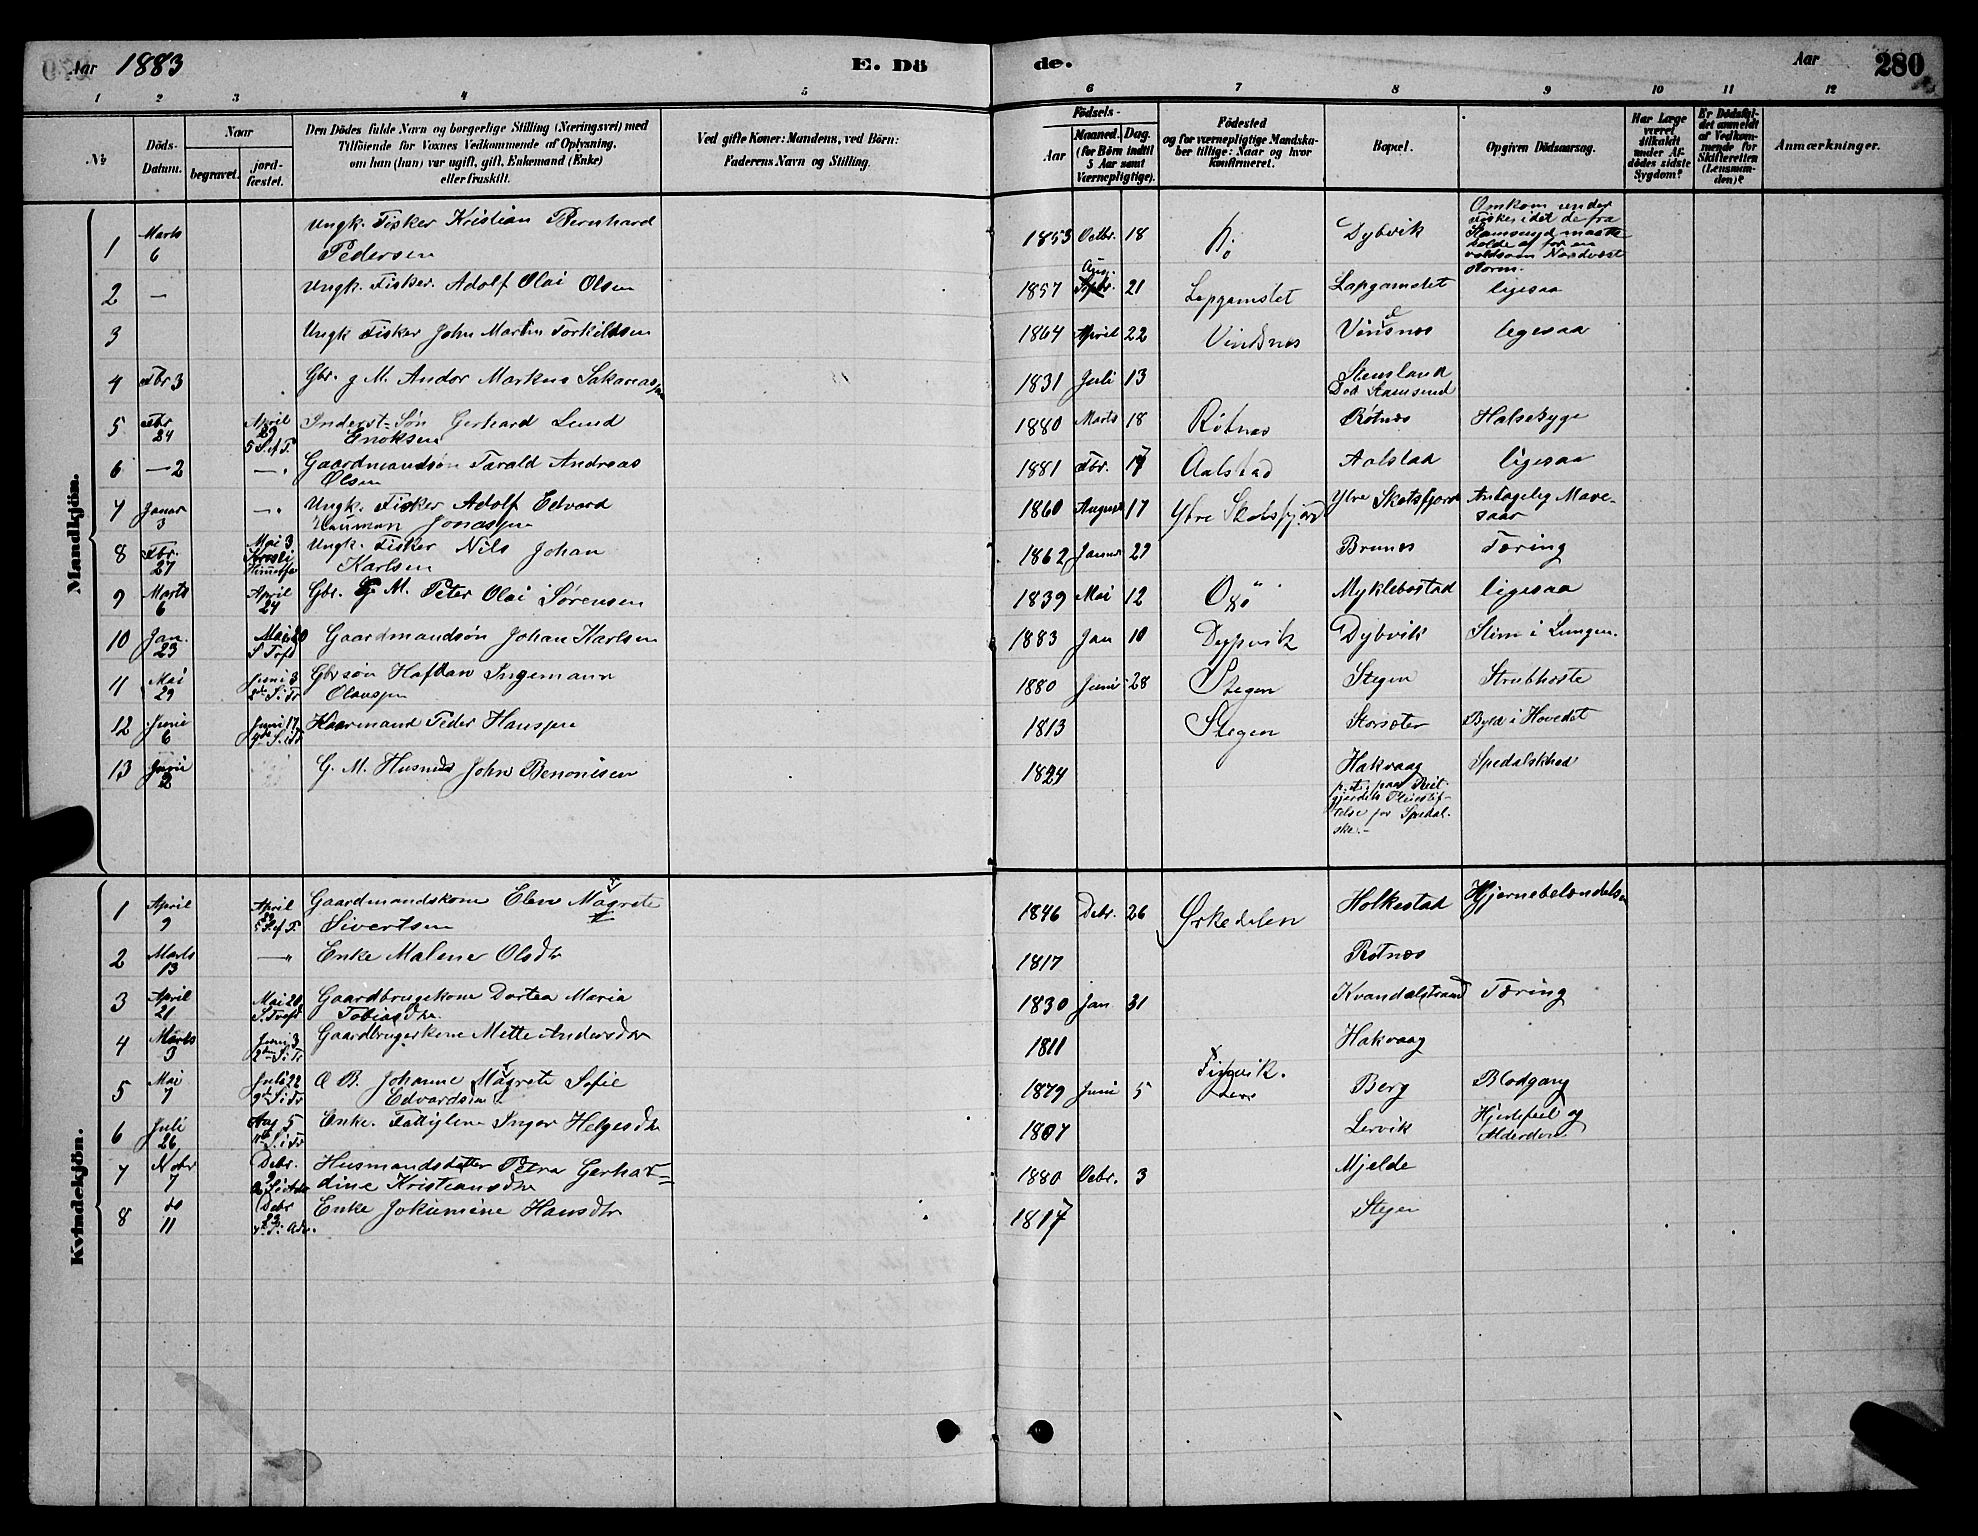 Aar 1883
E. Dö
de.
Aar
280
1 2 3 4 5 6 7 8 9 10 11 12
No
Döds-
Datum.
Naar
begravet.
jord-
fæstet.
Den Dödes fulde Navn og borgerlige Stilling (Næringsvei) med
Tilföiende for Voxnes Vedkommende af Oplysning,
om han (hun) var ugift, gift, Enkemand (Enke)
eller fraskilt.
Ved gifte Koner: Mandens, ved Börn:
Faderens Navn og Stilling.
Födsels-
Aar
Maaned. Dag.
(for Börn indtil
5 Aar samt
Værnepligtige).
Födested
og for værnepligtige Mandska-
ber tillige: Naar og hvor
konfirmeret.
Bopæl.
Opgiven Dödsaarsag.
Har Læge
været
tilkaldt
under Af-
dödes sidste
Sygdom?
Er Dödsfal-
det anmeldt
af Vedkom-
mende for
Skifteretten
(Lensman-
den)?
Anmærkninger.
Mandkjön.
1 Marts 6 Ungk. Fisker Kristian Bernhard
Pedersen
1853 Octbr. 18 Dybvik
Omkom under
Fiske idet de fra
Stamsund maatte
holde af for en
voldsom Nordvest
storm.
2 — Ungk. Fisker. Adolf Olai Olsen
1857 Aug. 21 Lapgamstet Lapgamstet ligesaa
3 Ungk Fisker John Martin Torkildsen
1864 April 22 Vindsnes Vindsnes ligesaa
4 Fbr 3 Gbr. g M. Andor Markus Sakariassen
1831 Juli 13 Stensland
Död Stamsund
5 Fbr. 24 April 29
5 S. ef P. Inderst-Søn Gerhard Lund
Enoksen
1880 Marts 18 Røtnes Røtnes Halsesyge
6 —2 —" Gaardmandsøn Tarald Andreas
Olsen
1881 Fbr. 17 Aalstad Aalstad ligesaa
7 Januar 3 —" Ungk. Fisker Adolf Edvard
Nauman Jonassen
1860 August 17 Ytre Skotsfjord Ytre Skotsfjord Antagelig Mave-
saar
8 Fbr. 27 Mai 3 Ungk. Fisker Nils Johan
Karlsen
1862 Januar 29 Brunes Tæring
9 Marts 6 April 24 Gbr. G. M. Peter Olai Sørensen
1839 Mai 12 Myklebostad ligesaa
10 Jan. 23 Mai 20 Gaardmandsøn Johan Karlsen
1883 Jan 10 Dypvik Dybvik Slim i Lungen.
11 Mai 29 Juni 3 Gbr søn Hafdan Ingemann
Olaussen
1880 Juni 28 Stegen Stegen Strubhoste
12 Juni 6 Juni 17 Kaarmand Peder Hanssen
1813 Stegen Storsæter Byld i Hovedet
13 Juni 2 G. M. Husmd John Benonisen
1824 Hakvaag
p. t. paa Reit-
gjærdets Pleiestif-
telse for Spedal-
ske.-
Spedalskhed
Kvindekjön.
1 April 9 April 29
5 S. ef P. Gaardmandskone Elen Magrete
Sivertsen
1846 Debr. 26 Ørkedalen Holkestad Hjernebetændelse
2 Marts 13 —" Enke Malene Olsdtr
1817 Røtnes
3 April 21 Mai 20 Gaardbrugekone Dortea Maria
Tobiasdtr
1830 Jan 31 Kvandalstrand Tæring
4 Marts 3 Juni 3 Gaardbrugerkone Mette Andersdtr
1811 Hakvaag
5 Mai 7 Juli 22 Johanne Magrete Sofie
Edvardsen
1879 Juni 5 Berg Blodgang
6 Juli 26 Aug 5 Enke. Fattiglem Inger Helgesdtr
1807 Lervik Hjertefeil og
Alderdom
7 Nobr 7 Debr. 9 Husmandsdatter Petra Gerhar=
dine Kristiansdtr
1880 Octbr. 3 Mjelde
8 do 11 Debr 23 Enke Jokumine Hansdtr
1817 Stegen